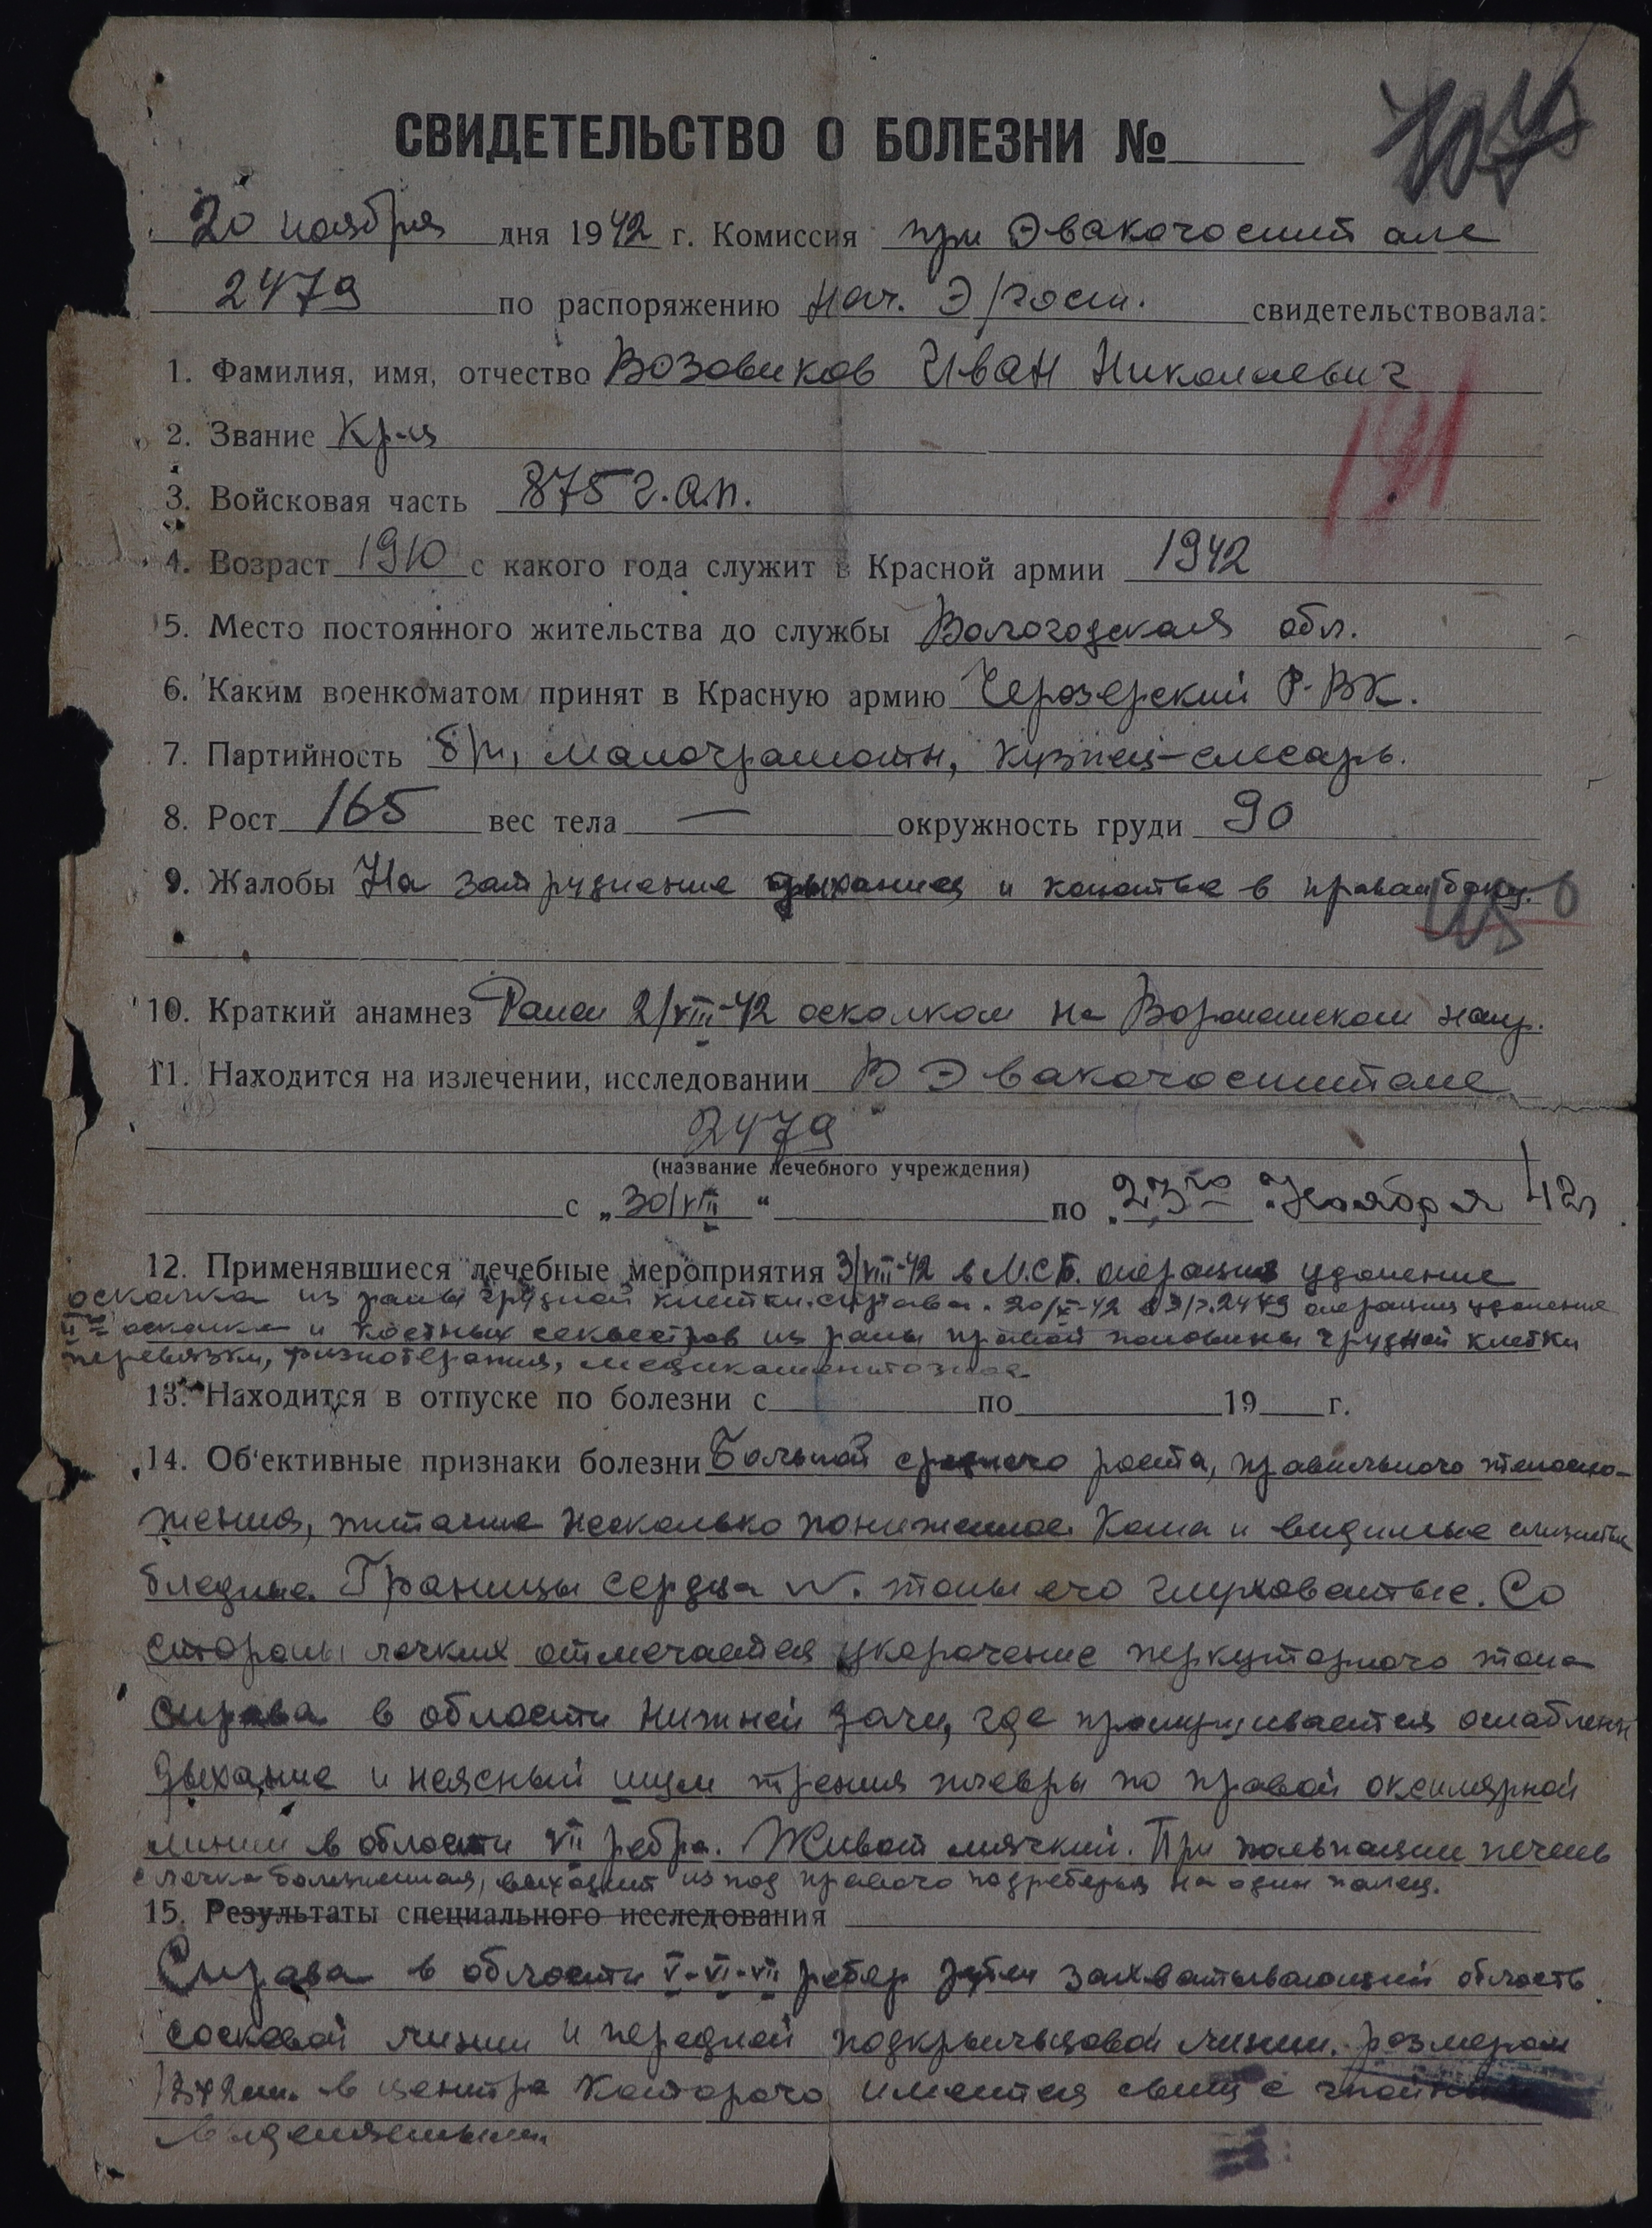 СВИДЕТЕЛЬСТВО О БОЛЕЗНИ №
20 ноября дня 1942 г. Комиссия при Эвакогоспитале
2479 по распоряжению Нач. Э/госп. свидетельствовала:
1. Фамилия, имя, отчество Возовиков Иван Николаевич
2. Звание Кр-ц
3. Войсковая часть 875 г.а.п.
191
4. Возраст 1910 с какого года служит в Красной армии 1942
5. Место постоянного жительства до службы Вологодская обл.
6. Каким военкоматом принят в Красную армию Черозерский Р-ВК.
7. Партийность б/п, малограмотн, кузнец-слесарь.
8. Рост 165 вес тела — окружность груди 90
9. Жалобы На затруднение дыхания и колотье в правом боку.
10. Краткий анамнез Ранен 2/VIII-42 осколком на Воронежском напр.
11. Находится на излечении, исследовании В Эвакогоспитале
2479
(название лечебного учреждения)
с „30/VIII“ по „23го“ Ноября 42г
12. Применявшиеся лечебные мероприятия 3/VIII-42 в М.С.Б. операция удаление
осколка из раны грудной клетки справа. 20/X-42 в Э/г. 2479 операция удаления
осколка и костных секвестров из раны правой половины грудной клетки
перевязки, физиотерапия, медикаментозное
13. Находится в отпуске по болезни с по 19 г.
14. Об'ективные признаки болезни Больной среднего роста, правильного телосло-
жения, питание несколько пониженное. Кожа и видимые слизистые
бледные. Границы сердца N. тоны его глуховатые. Со
стороны легких отмечается укорочение перкуторного тона
справа в области нижней доли, где прослушивается ослаблен
дыхание и неясный шум трения плевры по правой аксилярной
линии в области VII ребра. Живот мягкий. При пальпации печень
слегка болезненная, выходит из под правого подреберья на один палец.
15. Результаты специального исследования
Справа в области V-VI-VII ребер рубец захватывающий область
сосковой линии и передней подкрыльцовой линии. размером
в центре которого имеется свищ с гнойным
выделениями